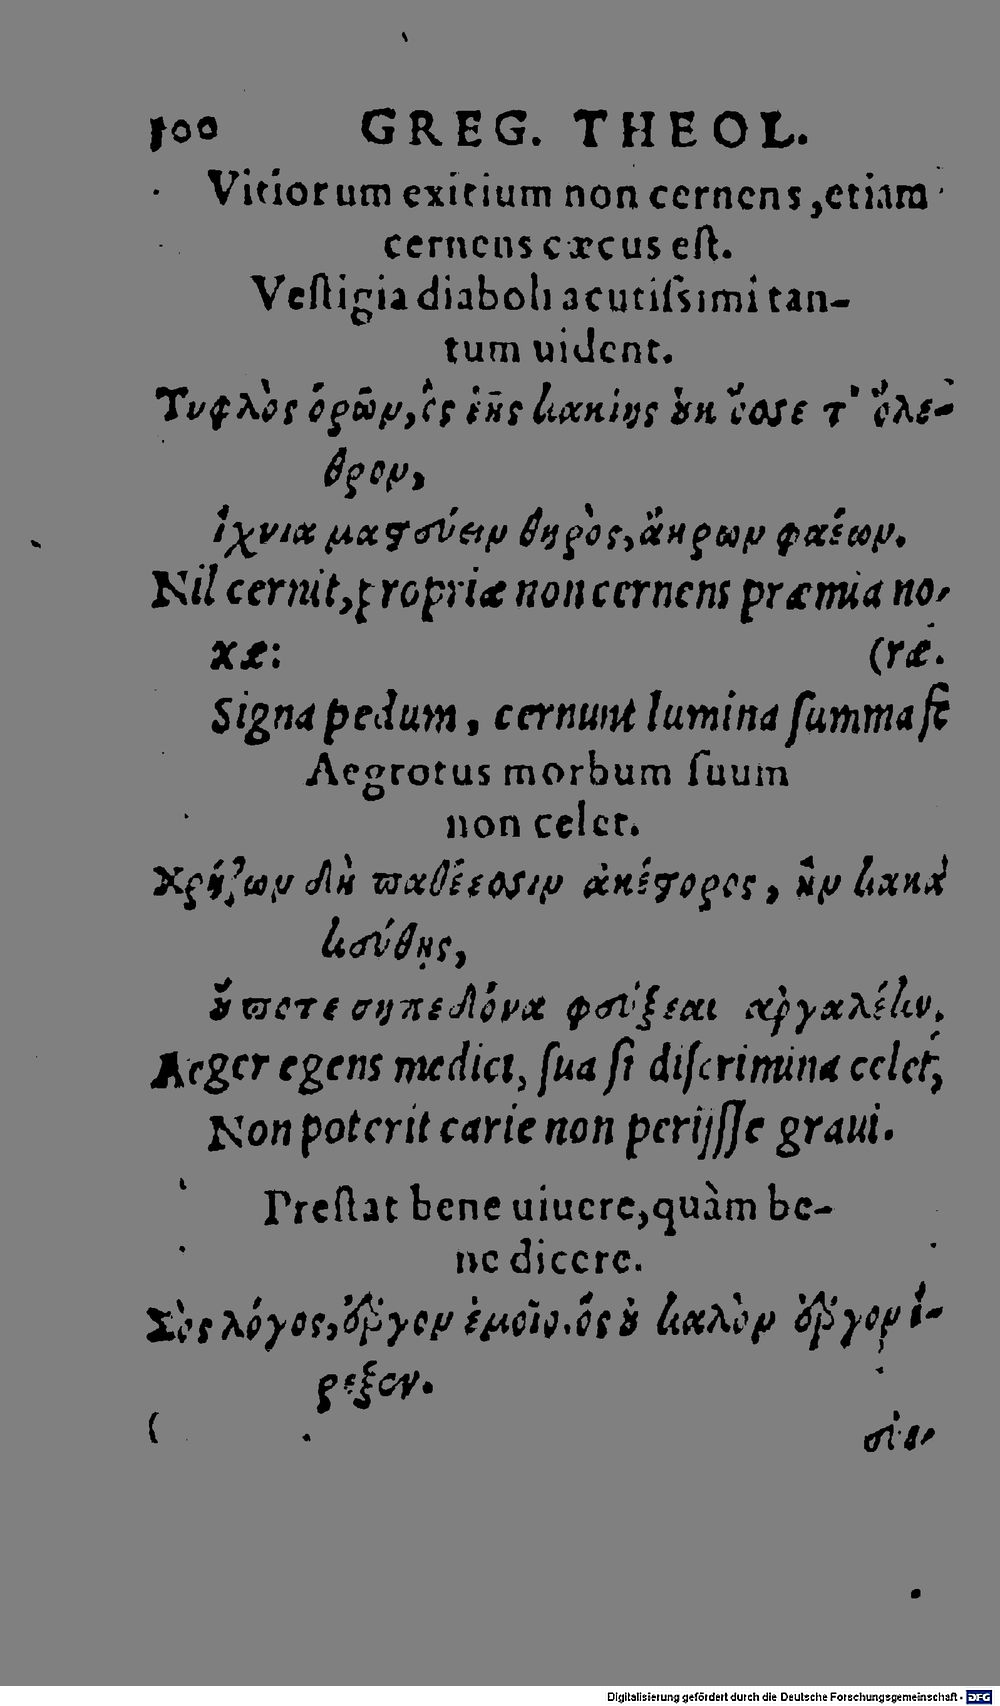 100 GREG. THEOL.
Vitiorum exitium non cernens, etiam
cernens cæcus eſt.
Veſtigia diaboli acutiſsimi tan-
tum uident.
Τυφλὸς ὁρῶν, ὃς ἑῆς κακίης οὐκ εἴσιδε τ' ὄλε-
θρον,
ἴχνια μαστεύειν θηρὸς, ἄκρων φαέων.
Nil cernit, propriæ non cernens præmia no-
xæ: (ræ.
Signa pedum, cernunt lumina ſumma fe
Aegrotus morbum ſuum
non celet.
χρῄζων δὴ παθέεσσιν ἀκέστορος, ἢν κακὰ
κεύθῃς,
οὔποτε σηπεδόνα φεύξεαι ἀργαλέην.
Aeger egens medici, ſua ſi diſcrimina celet,
Non poterit carie non perijſſe graui.
Preſtat bene uiuere, quàm be-
ne dicere.
Σὸς λόγος, ἔργον ἐμοῖο. ὃς οὐ καλὸν ἔργον ἔ-
ρεξεν.